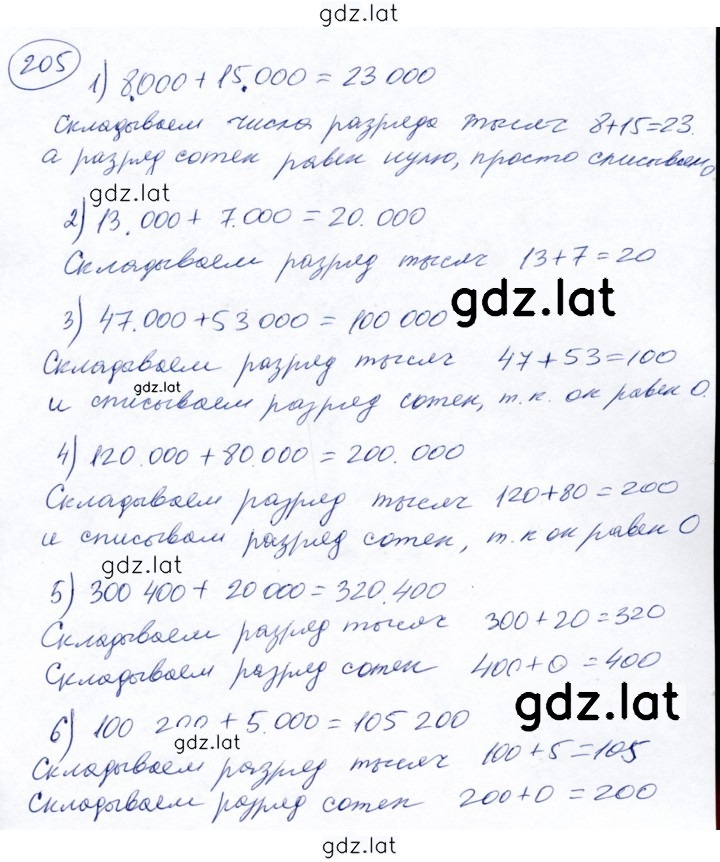 gdz.lat
205
1) 8.000 + 15.000 = 23 000
Складываем числа разряда тысяч 8+15=23.
а разряд сотен равен нулю, просто списываем
gdz.lat
2) 13.000 + 7.000 = 20.000
Складываем разряд тысяч 13+7=20
gdz.lat
3) 47.000 + 53 000 = 100 000
Складаваем разряд тысяч 47+53=100
gdz.lat
и списываем разряд сотен, т.к. он равен 0.
4) 120.000 + 80.000 = 200.000
Складываем разряд тысяч 120+80=200
и списывам разряд сотен, т.к он равен 0
gdz.lat
5) 300 400 + 20 000 = 320.400
Складываем разряд тысяч 300+20=320
Складываем разряд сотен 400+0=400
gdz.lat
6) 100 200 + 5.000 = 105 200
gdz.lat
Складываем разряд тысяч 100+5=105
Складываем разряд сотен 200+0=200
gdz.lat